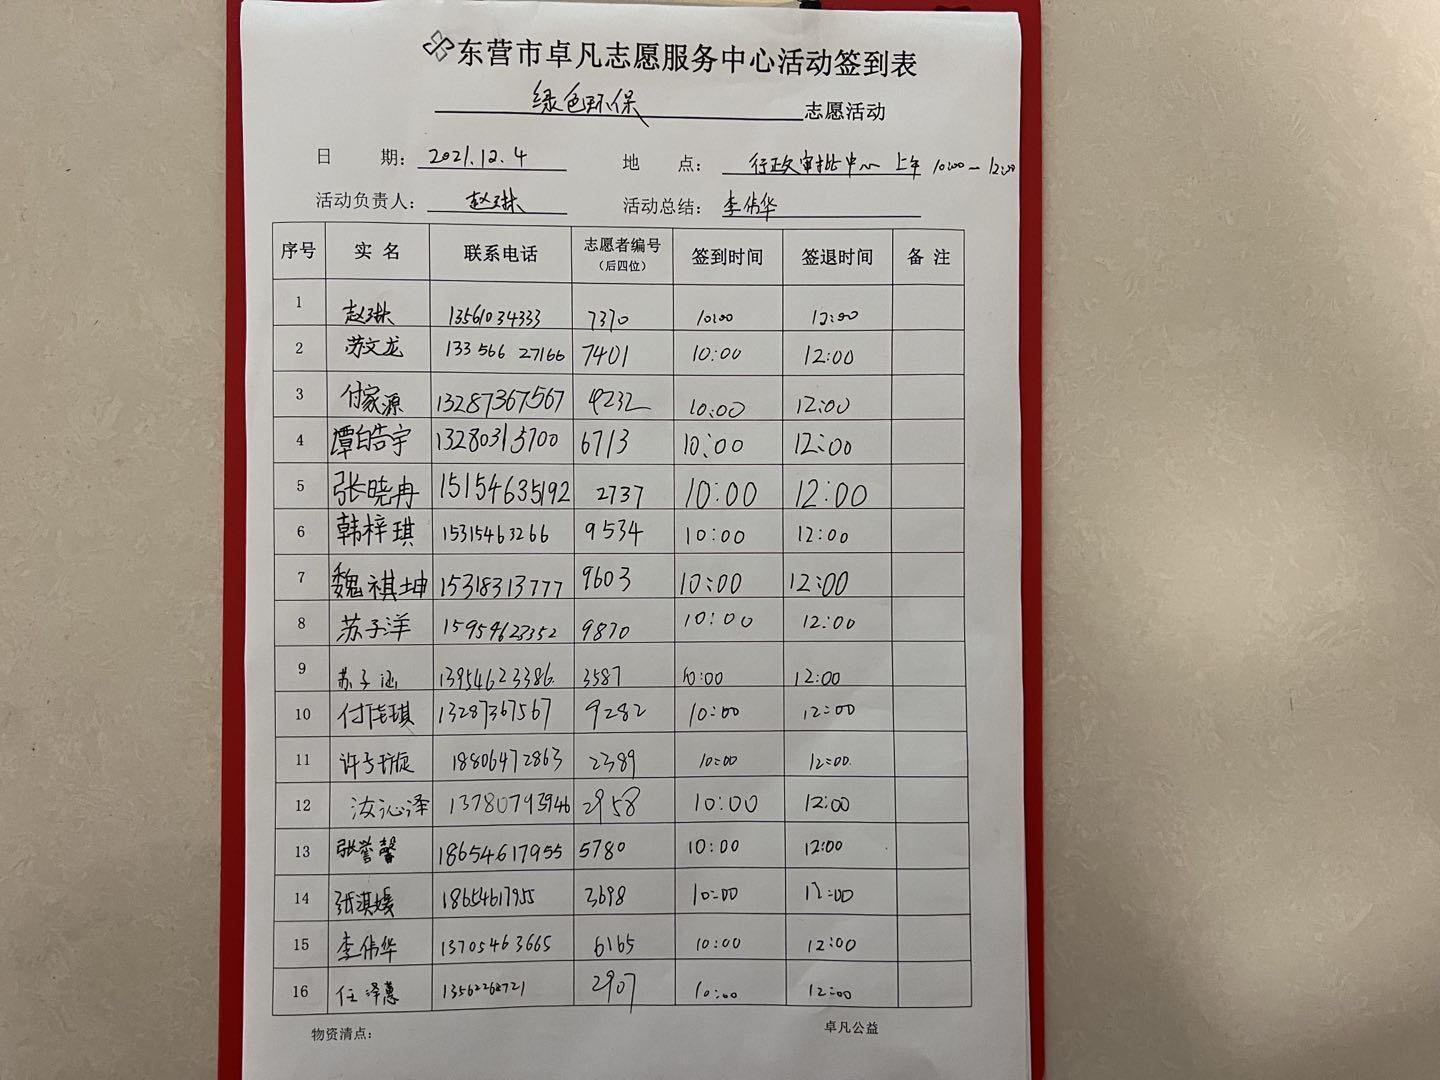 东营市卓凡志愿服务中心活动签到表
绿色环保 志愿活动
日 期: 2021.12.4 地 点: 行政审批中心 上午 10:00-12:00
活动负责人: 赵琳 活动总结: 李伟华
序号 实名 联系电话 志愿者编号(后四位) 签到时间 签退时间 备注
1 赵琳 13561034333 7370 10:00 12:00
2 苏文龙 133 566 27166 7401 10:00 12:00
3 付家源 13287367567 9232 10:00 12:00
4 谭皓宇 13280315700 6713 10:00 12:00
5 张晓冉 15154635192 2737 10:00 12:00
6 韩梓琪 15315463266 9534 10:00 12:00
7 魏祺坤 15318313777 9603 10:00 12:00
8 苏子洋 15954623352 9870 10:00 12:00
9 苏子涵 13954623386 3587 10:00 12:00
10 付佳琪 13287367567 9282 10:00 12:00
11 18806472863 2389 10:00 12:00
12 沁泽 13780793946 2958 10:00 12:00
13 张誉馨 18654617955 5780 10:00 12:00
14 张淇媛 18654617955 3698 10:00 12:00
15 李伟华 13705463665 6165 10:00 12:00
16 任泽惠 2907 10:00 12:00
物资清点: 卓凡公益